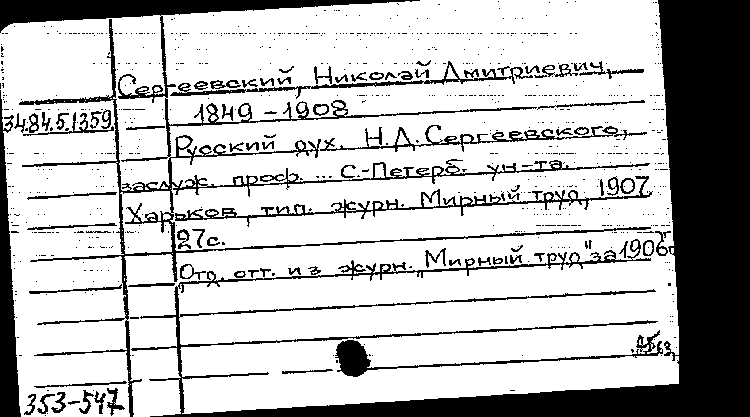 Сергеевский, Николай Дмитриевич,
34.84.5.1359. 1849 - 1908
Русский дух. Н.Д. Сергеевского,
заслуж. проф. ... С.-Петерб. ун-та.
Харьков, тип. журн. Мирный труд, 1907.
27с.
Отд. отт. из журн. „Мирный труд" за 1906
353-547